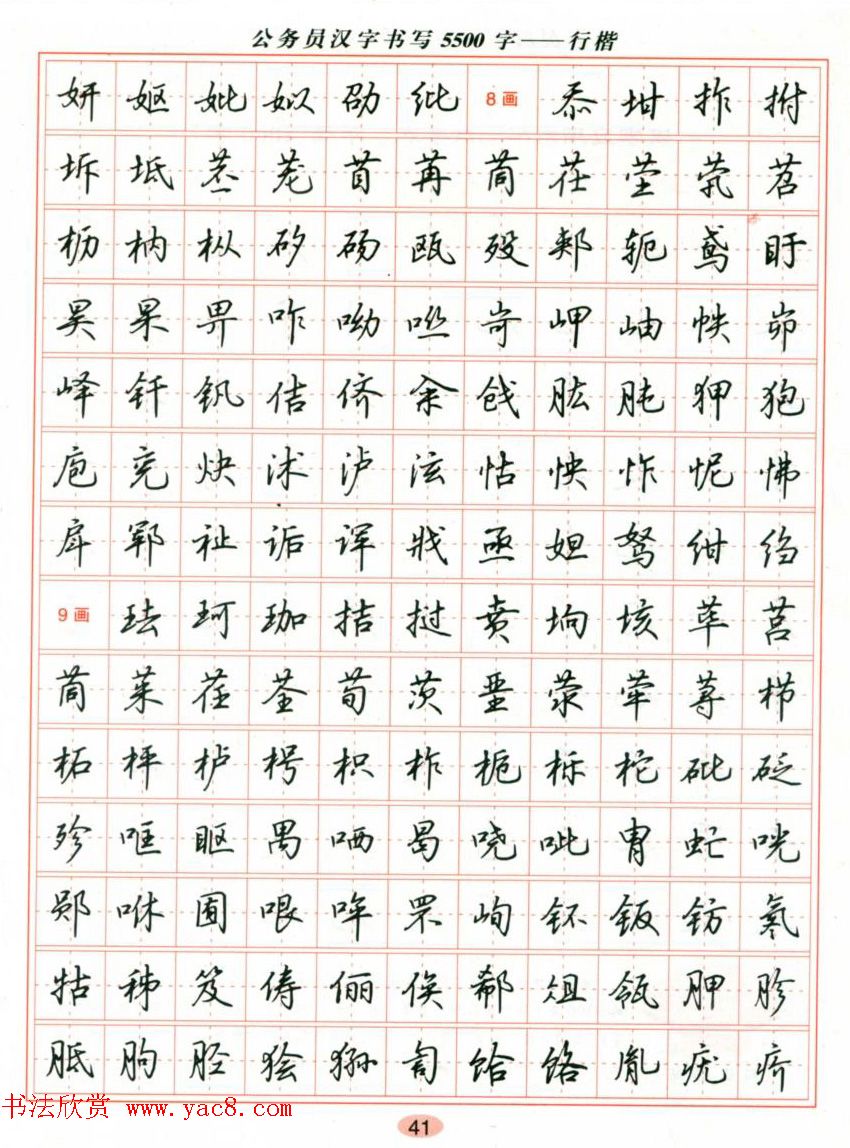 公务员汉字书写5500字——行楷
妍 妪 妣 姒 劭 纰 8画 忝 坩 拃 拊
坼 坻 苤 茏 苜 苒 茼 茌 茔 茕 茗
枥 枘 枞 矽 砀 瓯 殁 郏 轭 鸢 盱
昊 杲 畀 咋 呦 咝 岢 岬 岫 帙 峁
峄 钎 钒 佶 侪 籴 戗 肱 肫 狎 狍
庖 兖 炔 沭 泸 泫 怙 怏 怍 怩 怫
戽 郓 祉 诟 诨 戕 亟 妲 驽 绀 绉
9画 珐 珂 珈 拮 挞 贲 垧 垓 荜 莒
茼 茱 荏 荃 荀 茨 垩 荥 荤 荨 栉
柘 枰 栌 枵 枳 柞 栀 栎 柁 砒 砭
殄 哐 眍 禺 哂 曷 哓 呲 胄 虻 咣
郧 咻 囿 哏 哞 罘 峋 钚 钣 钫 氡
牯 秭 笈 俦 俪 俟 郗 俎 瓴 胛 胗
胝 朐 胫 狯 狲 訇 饸 饹 胤 疣 疥
书法欣赏 www.yac8.com
41